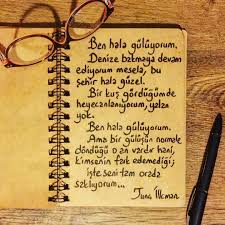 Ben hala gülüyorum.
Denize bakmaya devam
ediyorum mesela, bu
şehir hala güzel.
Bir kuş gördüğümde
heyecanlanıyorum, yalan
yok.
Ben hala gülüyorum.
Ama bir gülüşün normale
döndüğü o an vardır hani,
kimsenin fark edemediği;
işte seni tam orada
saklıyorum...